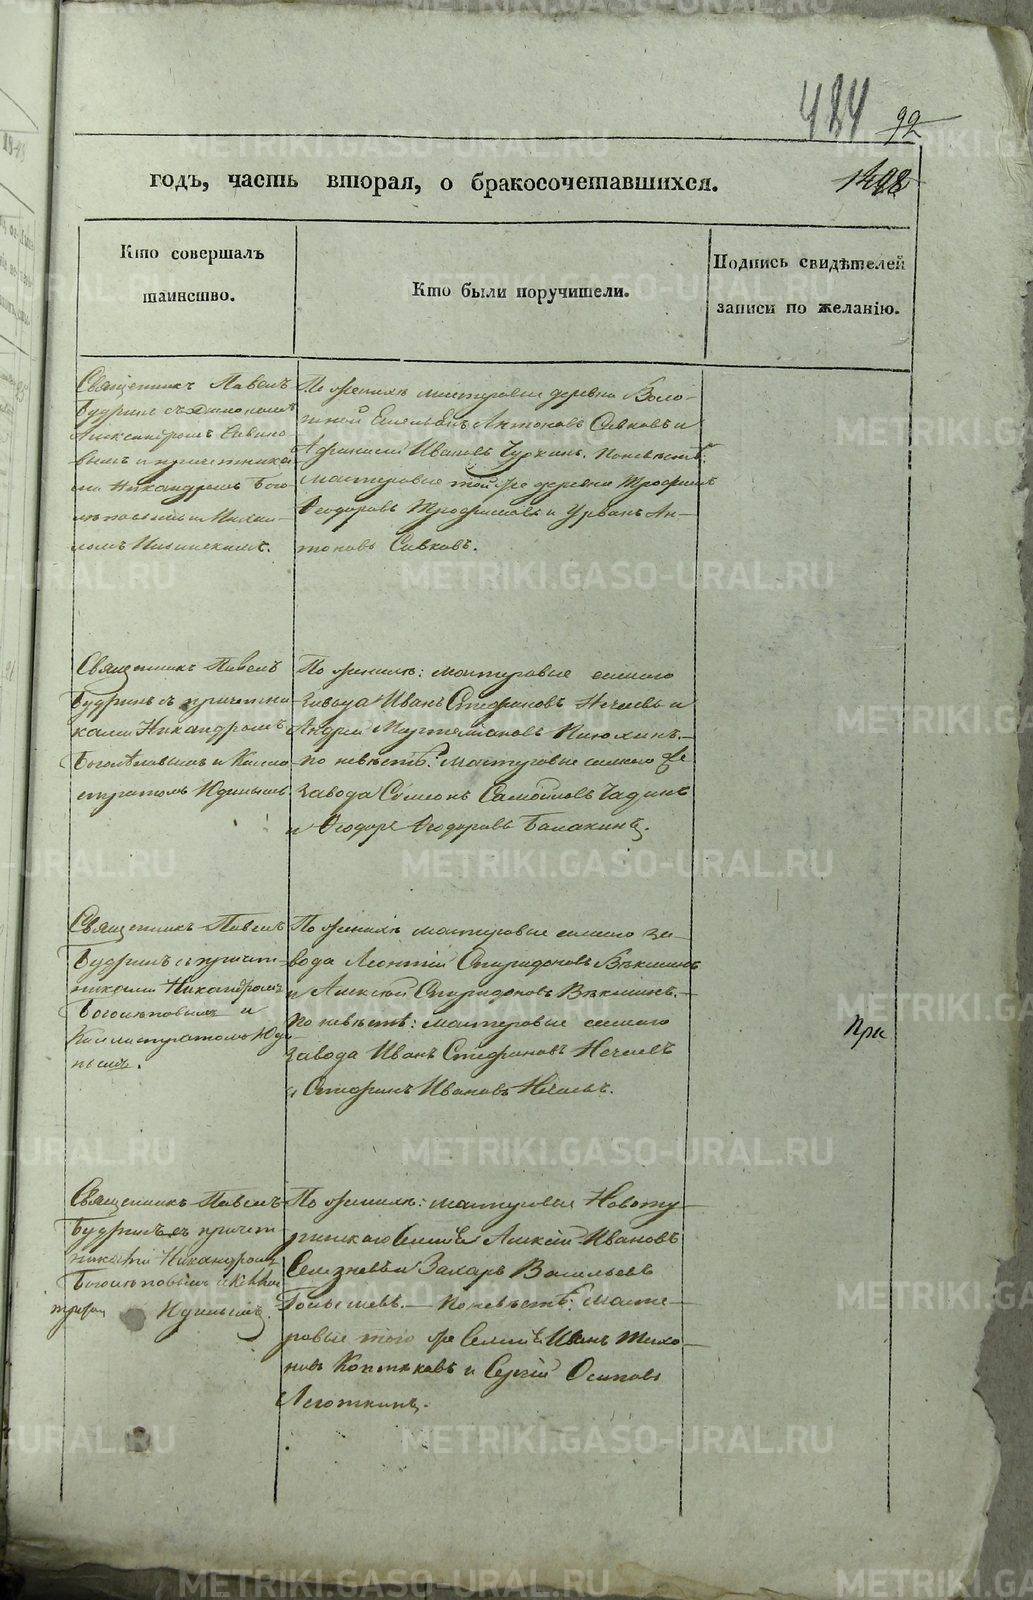 484 92
годъ, часть вторая, о бракосочетавшихся.
Кто совершалъ
таинство.
Кто были поручители.
Подпись свидѣтелей
записи по желанію.
Священникъ Павелъ
Будринъ съ діакономъ
Александромъ Сивило-
вымъ и причетника-
ми Никандромъ Бого-
лѣповымъ и Михаи-
ломъ
По женихѣ мастеровые деревни Воло-
Емельянъ Антоновъ Сивковъ и
Афанасій Ивановъ Чуркинъ. По невѣстѣ:
мастеровые той же деревни Трофимъ
Ѳеодоровъ Трофимовъ и Урванъ Ан-
тоновъ Сивковъ.
Священникъ Павелъ
Будринъ съ причетни-
ками Никандромъ
Боголѣповымъ и Калли-
стратомъ Юдинымъ
По женихѣ: мастеровые сего
завода Иванъ Стефановъ Нечаевъ и
Андрей
по невѣстѣ: мастеровые сего же
завода Симеонъ Самойловъ Чадинъ
и Ѳеодоръ Ѳеодоровъ Балакинъ.
Священникъ Павелъ
Будринъ съ причет-
никами Никандромъ
Боголѣповымъ и
Каллистратомъ Юди-
нымъ.
По женихѣ мастеровые сего за-
вода Леонтій Спиридоновъ Вѣкшинъ
и Алексѣй Спиридоновъ Вѣкшинъ.-
По невѣстѣ: мастеровые сего
завода Иванъ Стефановъ Нечаевъ
и Стефанъ Ивановъ Нечаевъ.
При
Священникъ Павелъ
Будринъ съ причет-
никами Никандромъ
Боголѣповымъ и Калли-
Юдинымъ.
По женихѣ: мастеровые Новоту-
ринскаго Алексѣй Ивановъ
Селезневъ и Захаръ Васильевъ
Голышевъ. — По невѣстѣ: масте-
ровые того же Иванъ Тихо-
новъ Коптяковъ и Сергій Осиповъ
Леготкинъ.
METRIKI.GASO-URAL.RU